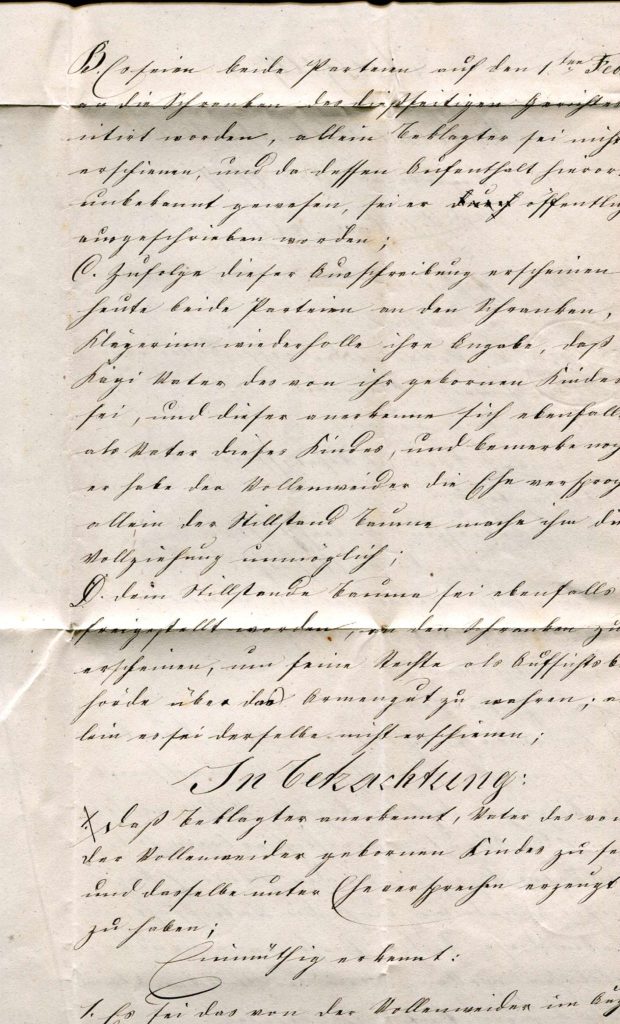 B. Es seien beide Parteien auf den 1.ten Feb
an die Schranken des dießseitigen Gerichtes
citirt worden, allein Beklagter sei nicht
erschienen, und da dessen Aufenthalt hieror
unbekannt gewesen, sei er öffentlich
ausgeschrieben worden;
C. Zufolge dieser Ausschreibung erscheinen
heute beide Parteien an den Schranken,
Klägerinn wiederholle ihre Angabe, daß
Kägi Vater des von ihr gebornen Kindes
sei, und dieser anerkenne sich ebenfalls
als Vater dieses Kindes, und bemerke noch
er habe der Vollenweider die Ehe versproch
allein der Stillstand Bauma mache ihm die
Vollziehung unmöglich;
D. dem Stillstande Bauma sei ebenfalls
freigestellt worden, an den Schranken zu
erscheinen, um seine Rechte als Aufsichtsb
hörde über das Armengut zu wahren; a
lein es sei derselbe nicht erschienen;
In Betrachtung:
daß Beklagter anerkennt, Vater des von
der Vollenweider gebornen Kindes zu se
und dasselbe unter Eheversprechen erzeugt
zu haben;
Einmüthig erkennt:
1. Es sei das von der Vollenweider im Aug